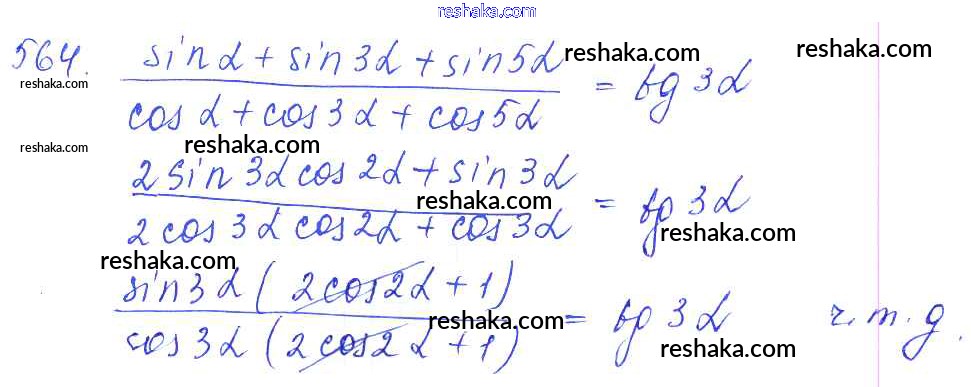 reshaka.com
564. (sin α + sin 3α + sin 5α) / (cos α + cos 3α + cos 5α) = tg 3α
reshaka.com
reshaka.com
reshaka.com
reshaka.com
reshaka.com
(2 sin 3α cos 2α + sin 3α) / (2 cos 3α cos 2α + cos 3α) = tg 3α
reshaka.com
reshaka.com
reshaka.com
(sin 3α (2 cos 2α + 1)) / (cos 3α (2 cos 2α + 1)) = tg 3α ч.т.д.
reshaka.com
reshaka.com